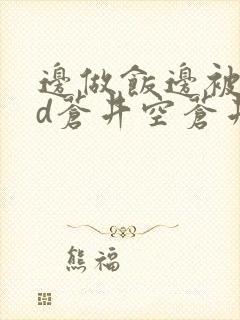 邊做飯邊被
d蒼井空蒼井
熊福